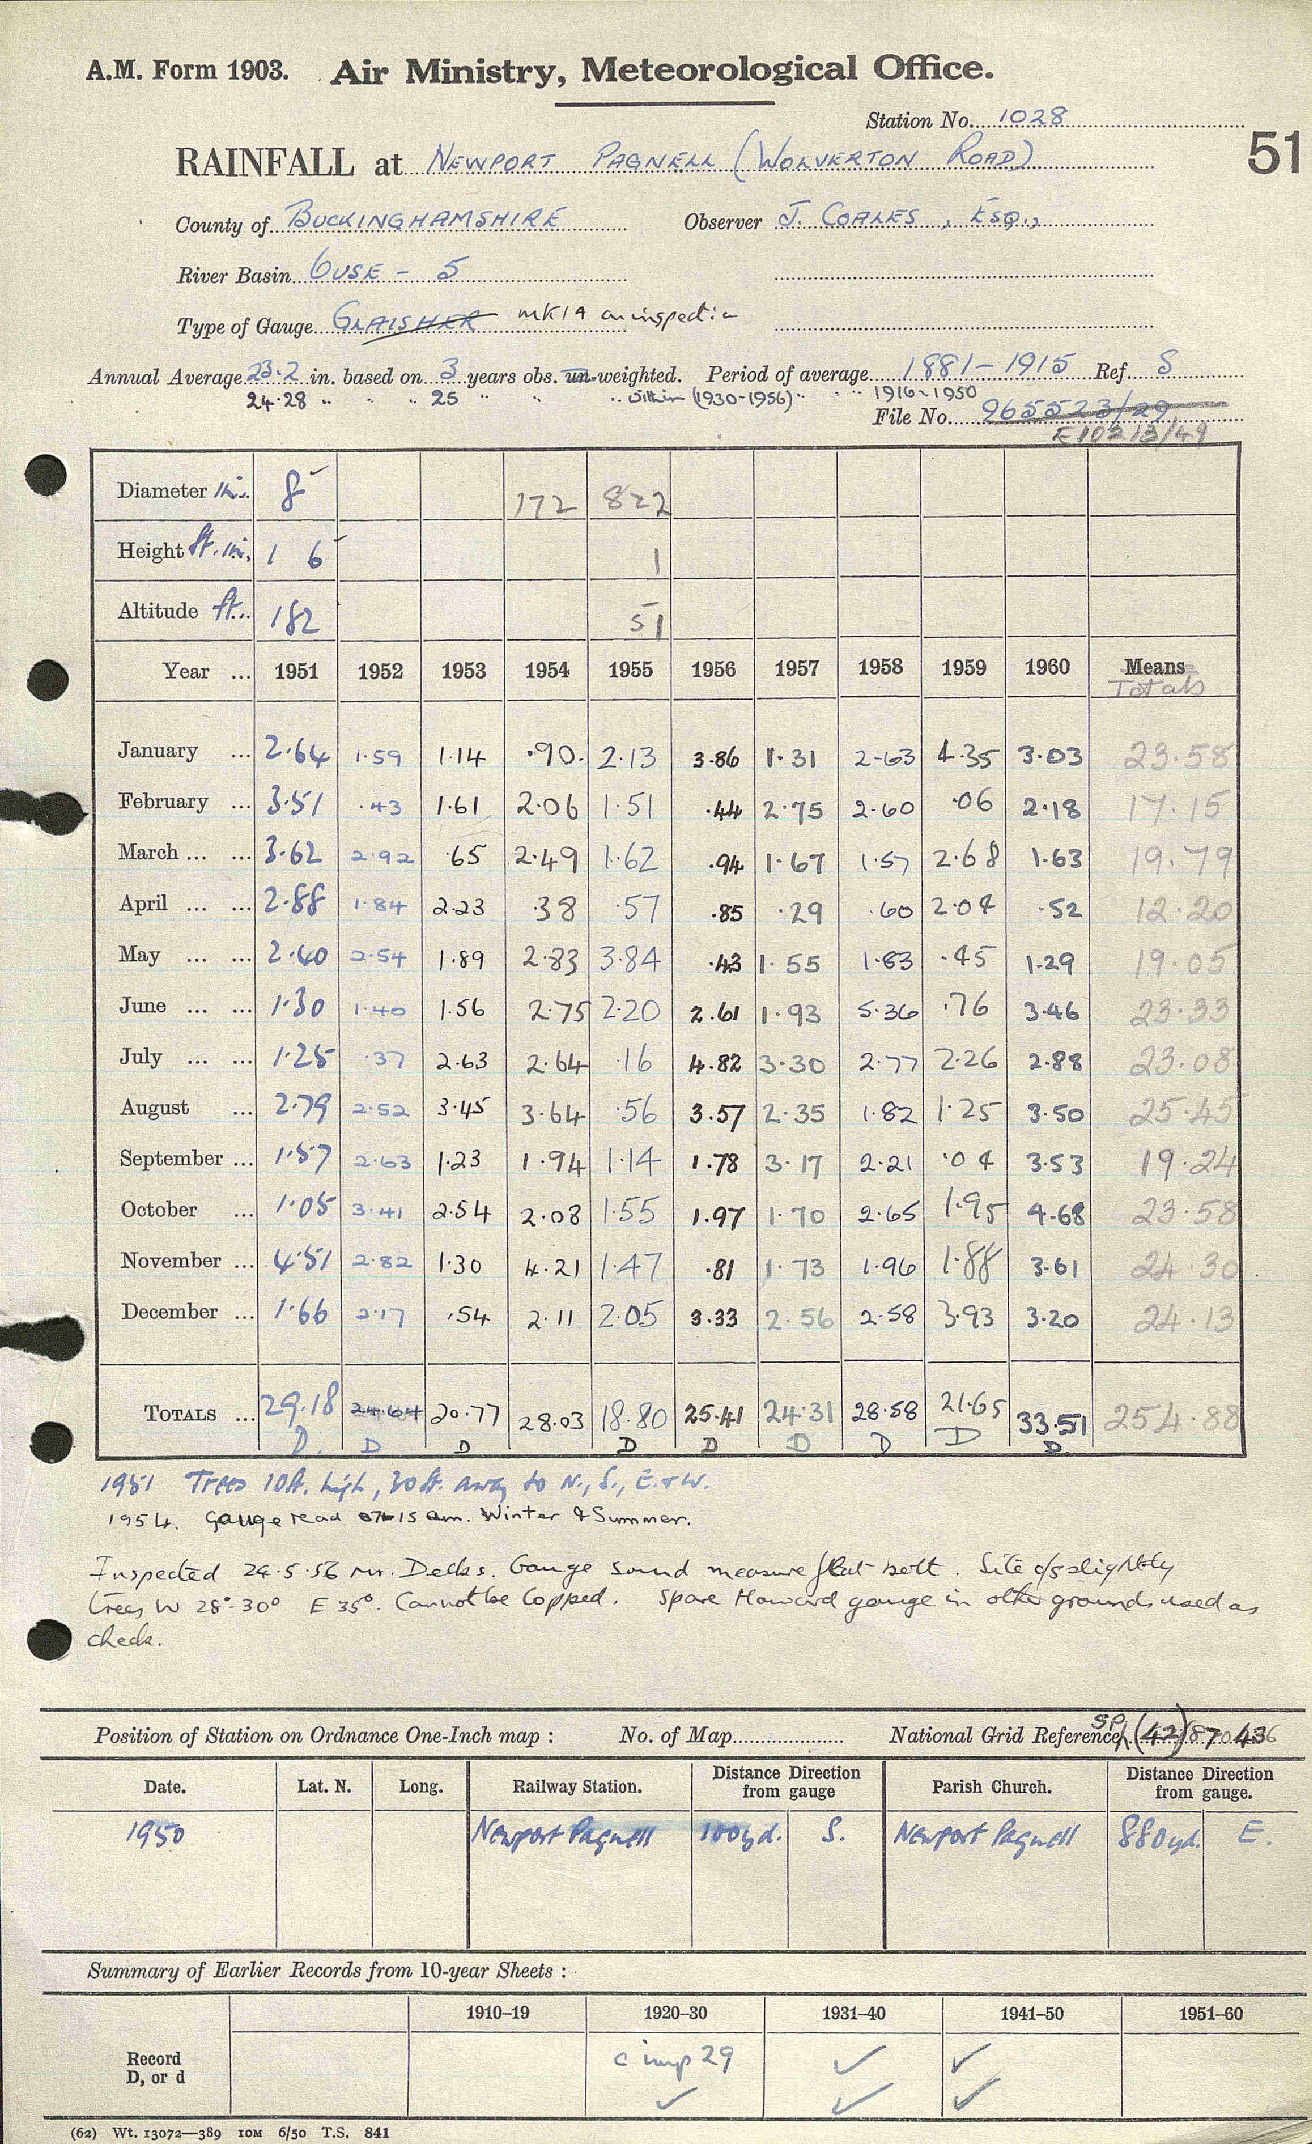 A.M. Form 1903. Air Ministry, Meteorological Office.
Station No. 1028
51
RAINFALL at NEWPORT PAGNELL (WOLVERTON ROAD)
County of BUCKINGHAMSHIRE Observer J. COALES, ESQ.,
River Basin OUSE - 5
Type of Gauge GLAISHER MK 1A on inspection
Annual Average 23.2 in. based on 3 years obs. un-weighted. Period of average 1881-1915 Ref. S
24.28 " " " 25 " " " within (1930-1956) " " " 1916-1950
File No. 965523/29
E10213/49
Diameter in. 8 172 822
Height ft. in. 1 6 1
Altitude ft. 182 51
Year ... 1951 1952 1953 1954 1955 1956 1957 1958 1959 1960 Means
Totals
January ... 2.64 1.59 1.14 .90 2.13 3.86 1.31 2.63 4.35 3.03 23.58
February ... 3.51 .43 1.61 2.06 1.51 .44 2.75 2.60 .06 2.18 17.15
March ... ... 3.62 2.92 .65 2.49 1.62 .94 1.67 1.57 2.68 1.63 19.79
April ... ... 2.88 1.84 2.23 .38 .57 .85 .29 .60 2.04 .52 12.20
May ... ... 2.40 2.54 1.89 2.83 3.84 .43 1.55 1.83 .45 1.29 19.05
June ... ... 1.30 1.40 1.56 2.75 2.20 2.61 1.93 5.36 .76 3.46 23.33
July ... ... 1.25 .37 2.63 2.64 .16 4.82 3.30 2.77 2.26 2.88 23.08
August ... 2.79 2.52 3.45 3.64 .56 3.57 2.35 1.82 1.25 3.50 25.45
September ... 1.57 2.63 1.23 1.94 1.14 1.78 3.17 2.21 .04 3.53 19.24
October ... 1.05 3.41 2.54 2.08 1.55 1.97 1.70 2.65 1.95 4.68 23.58
November ... 4.51 2.82 1.30 4.21 1.47 .81 1.73 1.96 1.88 3.61 24.30
December ... 1.66 2.17 .54 2.11 2.05 3.33 2.56 2.58 3.93 3.20 24.13
TOTALS ... 29.18 24.64 20.77 28.03 18.80 25.41 24.31 28.58 21.65 33.51 254.88
D. D D D D D D D D
1951 Trees 10ft. high, 30ft. away to N., S., E. & W.
1954. Gauge read at 0715 am. Winter & Summer.
Inspected 24.5.56 Mr. Dedks. Gauge sound measure flat bott. Site o/s slightly
trees W 28°-30° E 35°. Cannot be lopped. Spare Howard gauge in other grounds used as
check.
Position of Station on Ordnance One-Inch map : No. of Map National Grid Reference SP (42) 870.436
Date. Lat. N. Long. Railway Station. Distance Direction from gauge Parish Church. Distance Direction from gauge.
1950 Newport Pagnell 100yd. S. Newport Pagnell 880yd. E.
Summary of Earlier Records from 10-year Sheets :
1910–19 1920–30 1931–40 1941–50 1951–60
Record c imp 29 ✓ ✓
D, or d ✓ ✓ ✓
(62) Wt. 13072—389 IOM 6/50 T.S. 841